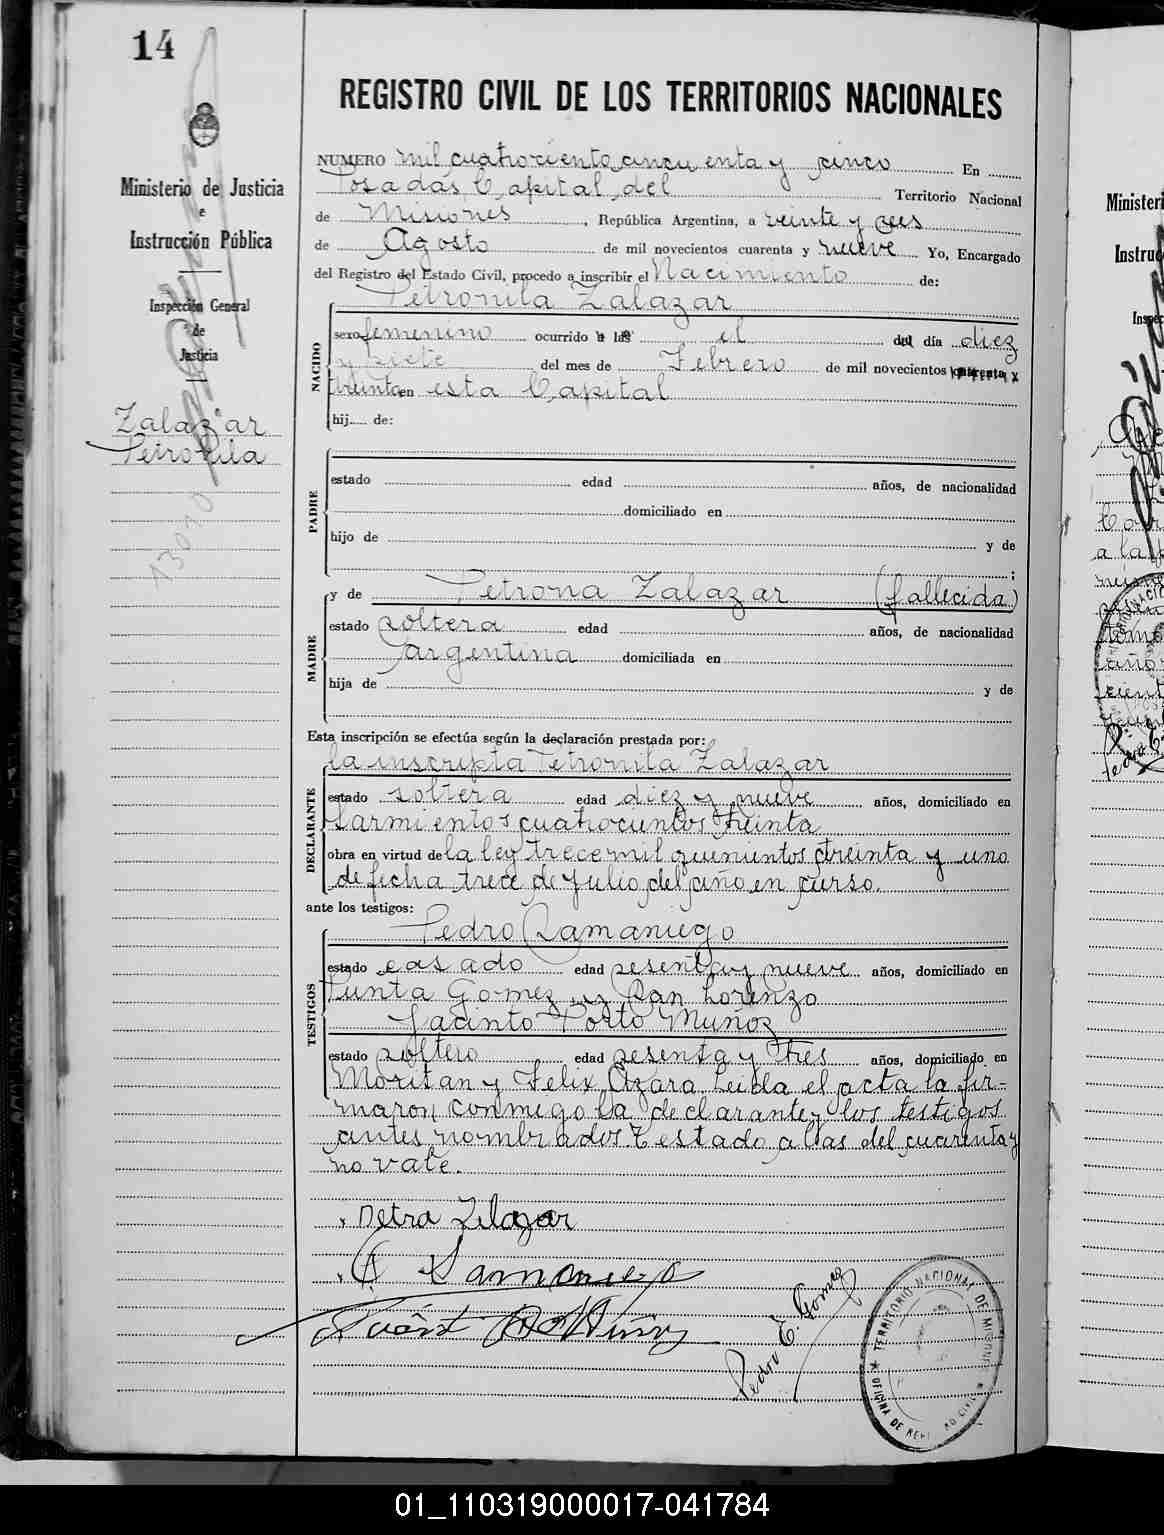 14
REGISTRO CIVIL DE LOS TERRITORIOS NACIONALES
Ministerio de Justicia
e
Instrucción Pública
Inspección General
de
Justicia
Zalazar
Petronila
13010
NUMERO mil cuatrociento cincuenta y cinco En
Posadas Capital del Territorio Nacional
de Misiones, República Argentina, a veinte y seis
de Agosto de mil novecientos cuarenta y nueve Yo, Encargado
del Registro del Estado Civil, procedo a inscribir el Nacimiento de:
Petronila Zalazar
NACIDO
sexo femenino ocurrido a las el del día diez
y siete del mes de Febrero de mil novecientos cuarenta y
treinta en esta Capital
hij de:
PADRE
estado edad años, de nacionalidad
domiciliado en
hijo de y de
;
MADRE
y de Petrona Zalazar (fallecida)
estado soltera edad años, de nacionalidad
argentina domiciliada en
hija de y de
Esta inscripción se efectúa según la declaración prestada por:
la inscripta Petronila Zalazar
DECLARANTE
estado soltera edad diez y nueve años, domiciliado en
Sarmientos cuatrocientos treinta
obra en virtud de la ley trece mil quinientos treinta y uno
de fecha trece de Julio del año en curso.
ante los testigos:
Pedro Samaniego
TESTIGOS
estado casado edad sesenta y nueve años, domiciliado en
Punta Gomez y San Lorenzo
Jacinto Porto Muñoz
estado soltero edad sesenta y tres años, domiciliado en
Moritan y Felix Azara Leida el acta la fir-
maron conmigo la declarante y los testigos
antes nombrados T estado a las del cuarenta y
no vale.
Petra Zalazar
Samaniego
Pedro E. Gomez
TERRITORIO NACIONAL DE MISIONES
OFICINA DE REGISTRO CIVIL
Ministeri
Instruc
Inspec
01_110319000017-041784